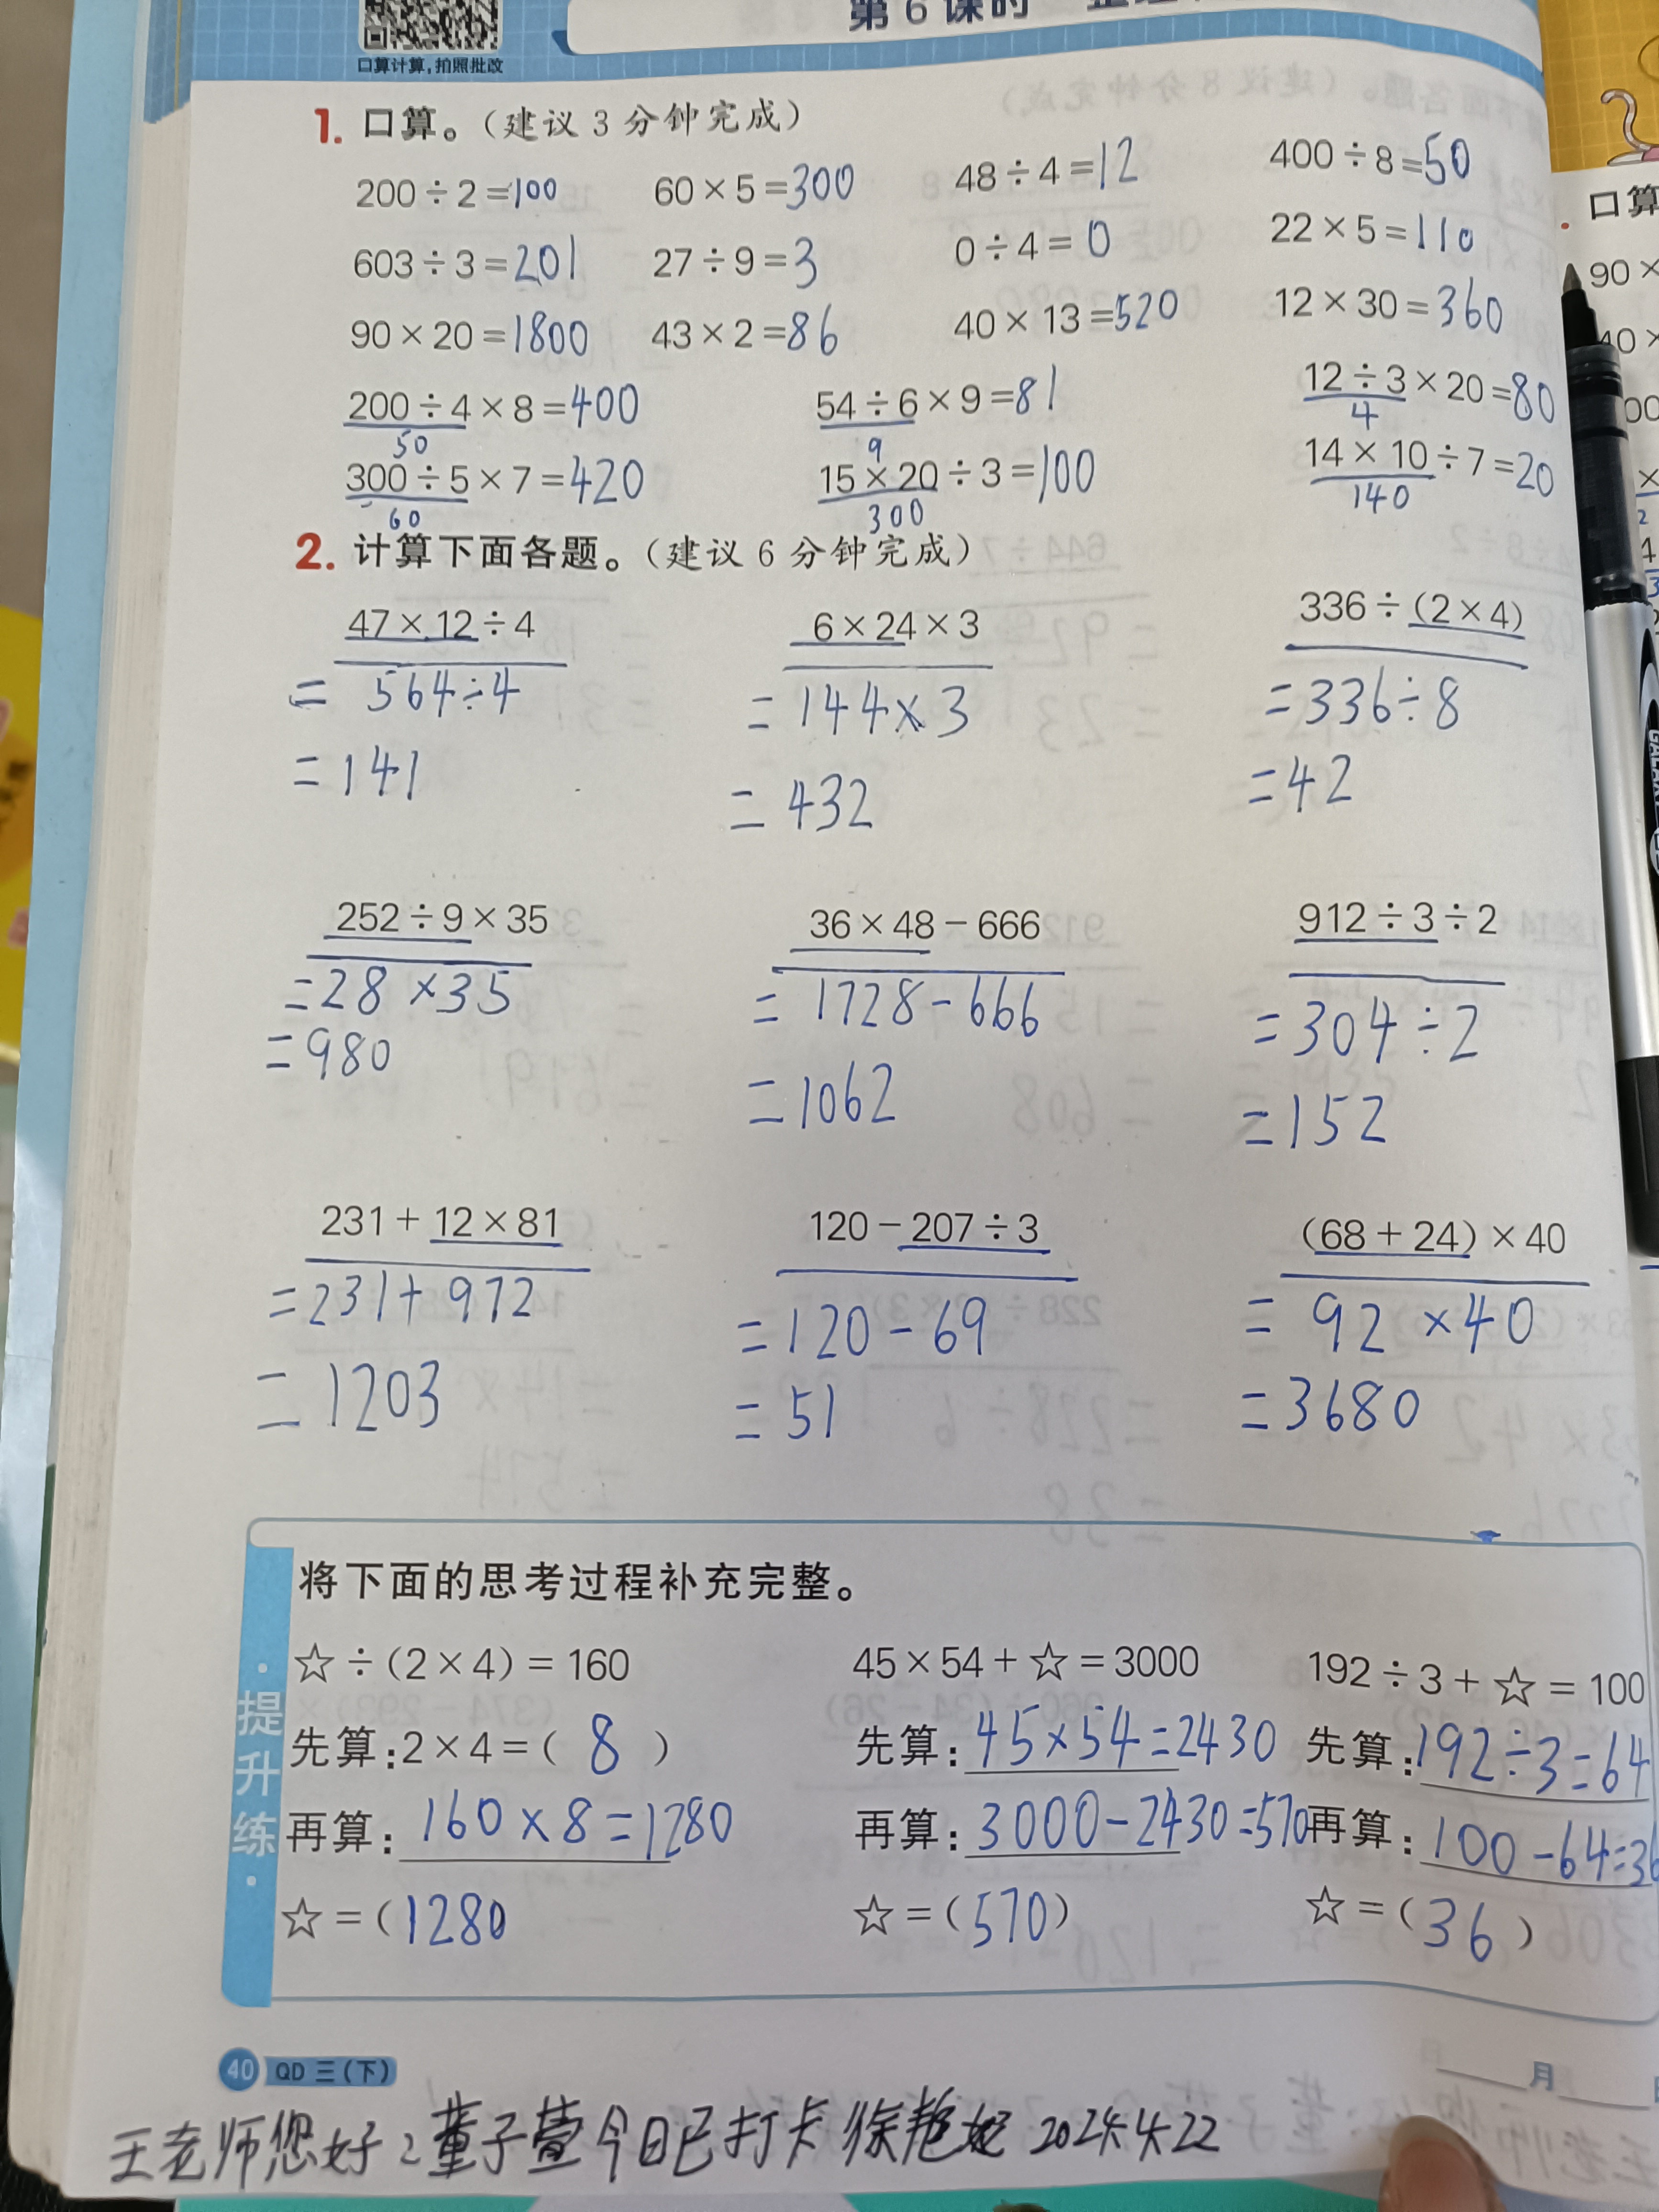 口算计算,拍照批改
第6课时
1. 口算。(建议3分钟完成)
200÷2=100 60×5=300 48÷4=12 400÷8=50
603÷3=201 27÷9=3 0÷4=0 22×5=110
90×20=1800 43×2=86 40×13=520 12×30=360
200÷4×8=400 54÷6×9=81 12÷3×20=80
50 9 4
300÷5×7=420 15×20÷3=100 14×10÷7=20
60 300 140
2. 计算下面各题。(建议6分钟完成)
47×12÷4 6×24×3 336÷(2×4)
=564÷4 =144×3 =336÷8
=141 =432 =42
252÷9×35 36×48-666 912÷3÷2
=28×35 =1728-666 =304÷2
=980 =1062 =152
231+12×81 120-207÷3 (68+24)×40
=231+972 =120-69 =92×40
=1203 =51 =3680
·提升练·
将下面的思考过程补充完整。
☆÷(2×4)=160 45×54+☆=3000 192÷3+☆=100
先算:2×4=(8) 先算:45×54=2430 先算:192÷3=64
再算:160×8=1280 再算:3000-2430=570 再算:100-64=36
☆=(1280 ☆=(570) ☆=(36)
40 QD 三(下)
月
王老师您好:董子萱今日已打卡 徐艳妮 2024.4.22
口算
90×
40×